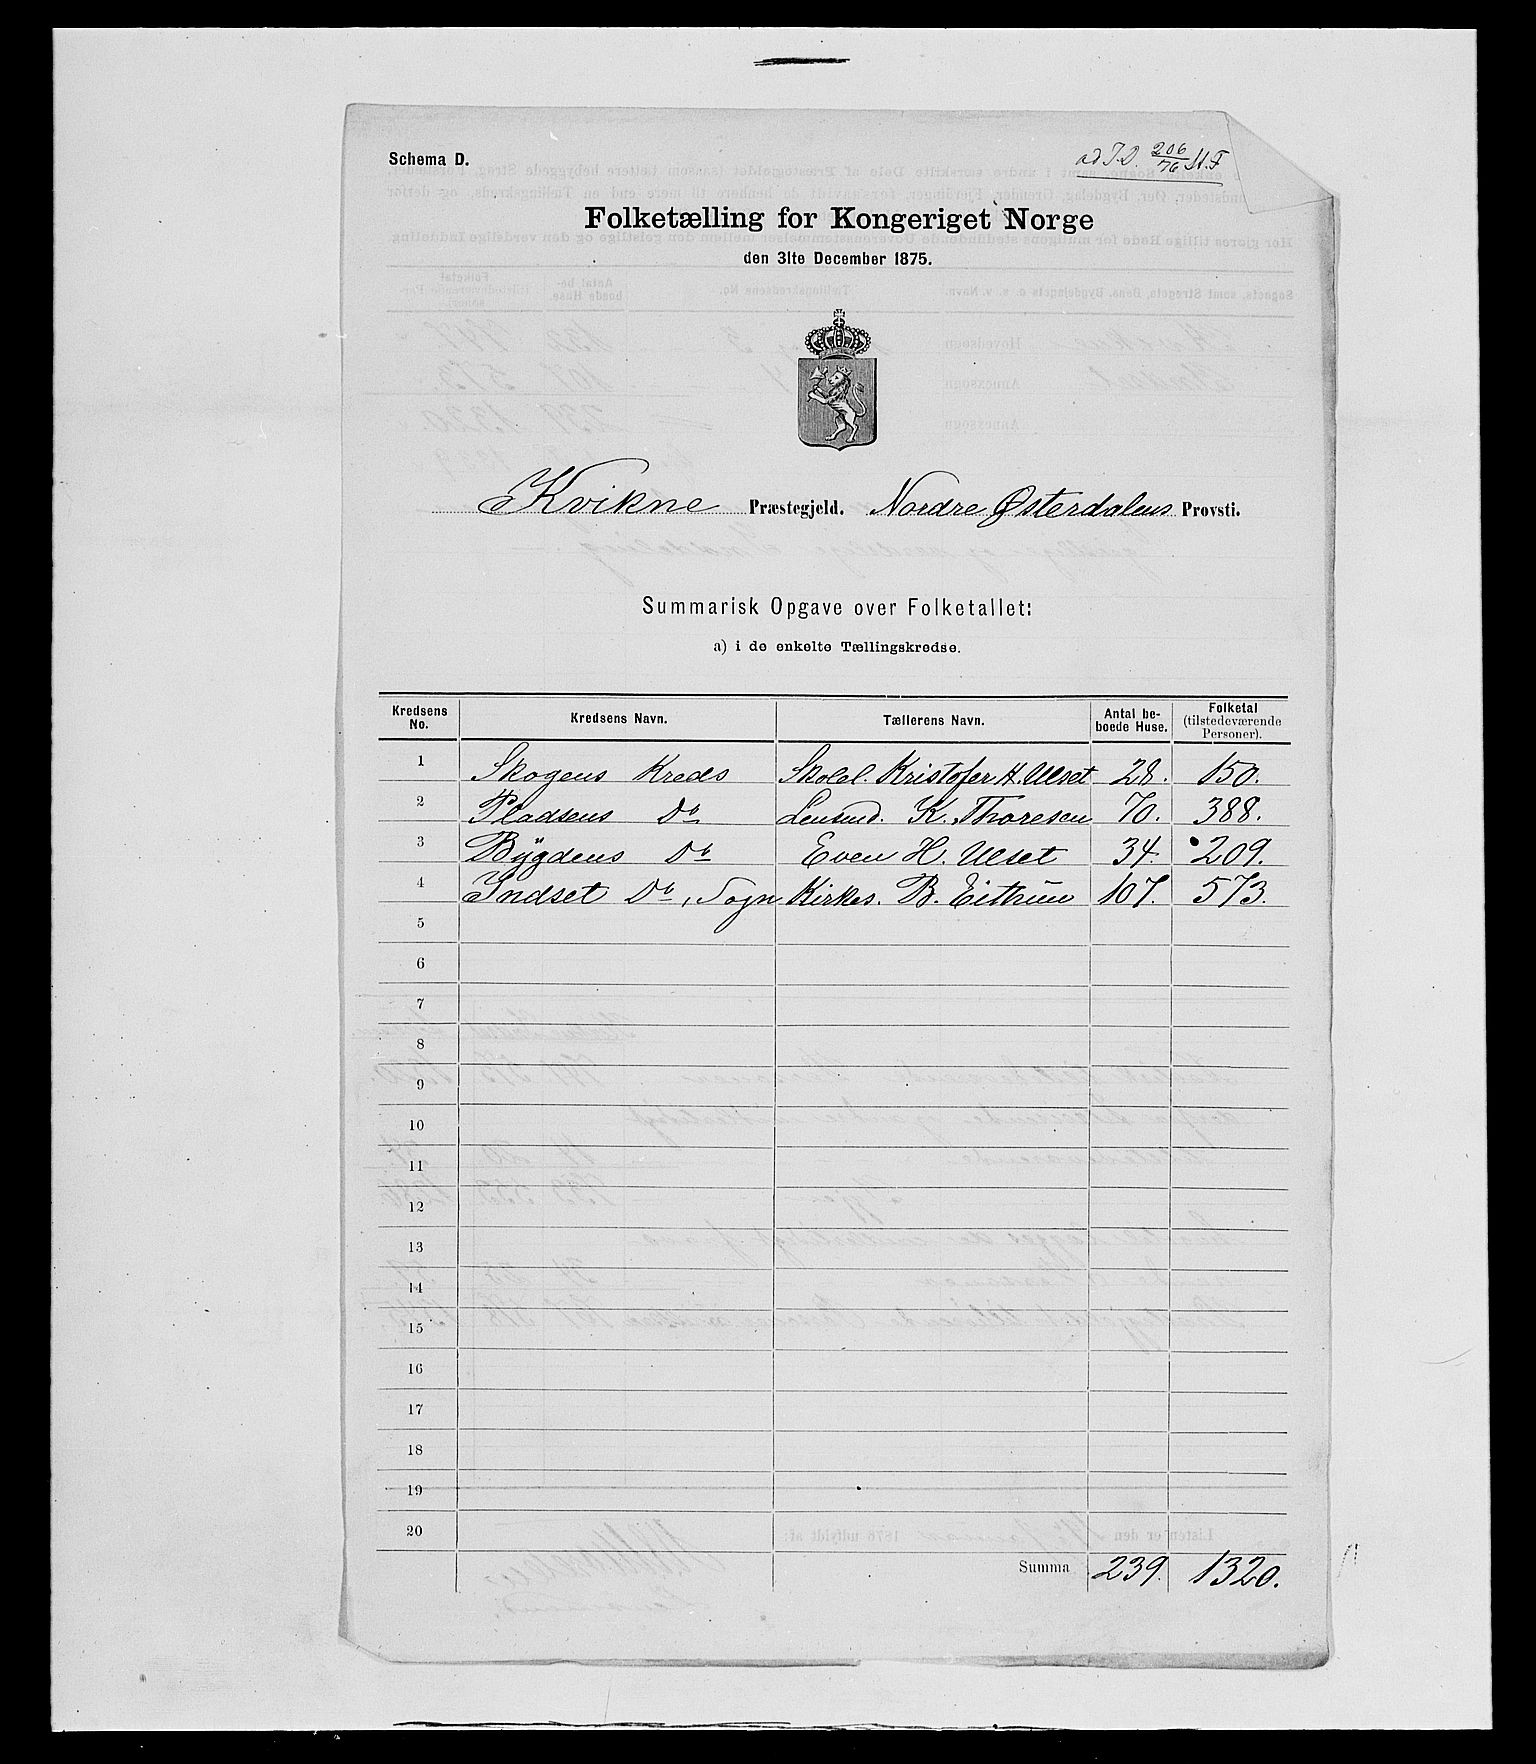 Schema D.
ad J.D. 206/76 M.F
Folketælling for Kongeriget Norge
den 31te December 1875.
Kvikne Præstegjeld. Nordre Østerdalens Provsti.
Summarisk Opgave over Folketallet:
a) i de enkelte Tællingskredse.
Kredsens No. Kredsens Navn. Tællerens Navn. Antal beboede Huse. Folketal (tilstedeværende Personer).
1 Skogens Kreds Skolel. Kristofer H. Ulset 28. 150.
2 Pladsens Do Lensmd. K. Thoresen 70. 388.
3 Bÿgdens Do Even H. Ulset 34. 209.
4 Indset Do, Sogn Kirkes. B. Eithun 107. 573.
5
6
7
8
9
10
11
12
13
14
15
16
17
18
19
20
Summa 239. 1320.